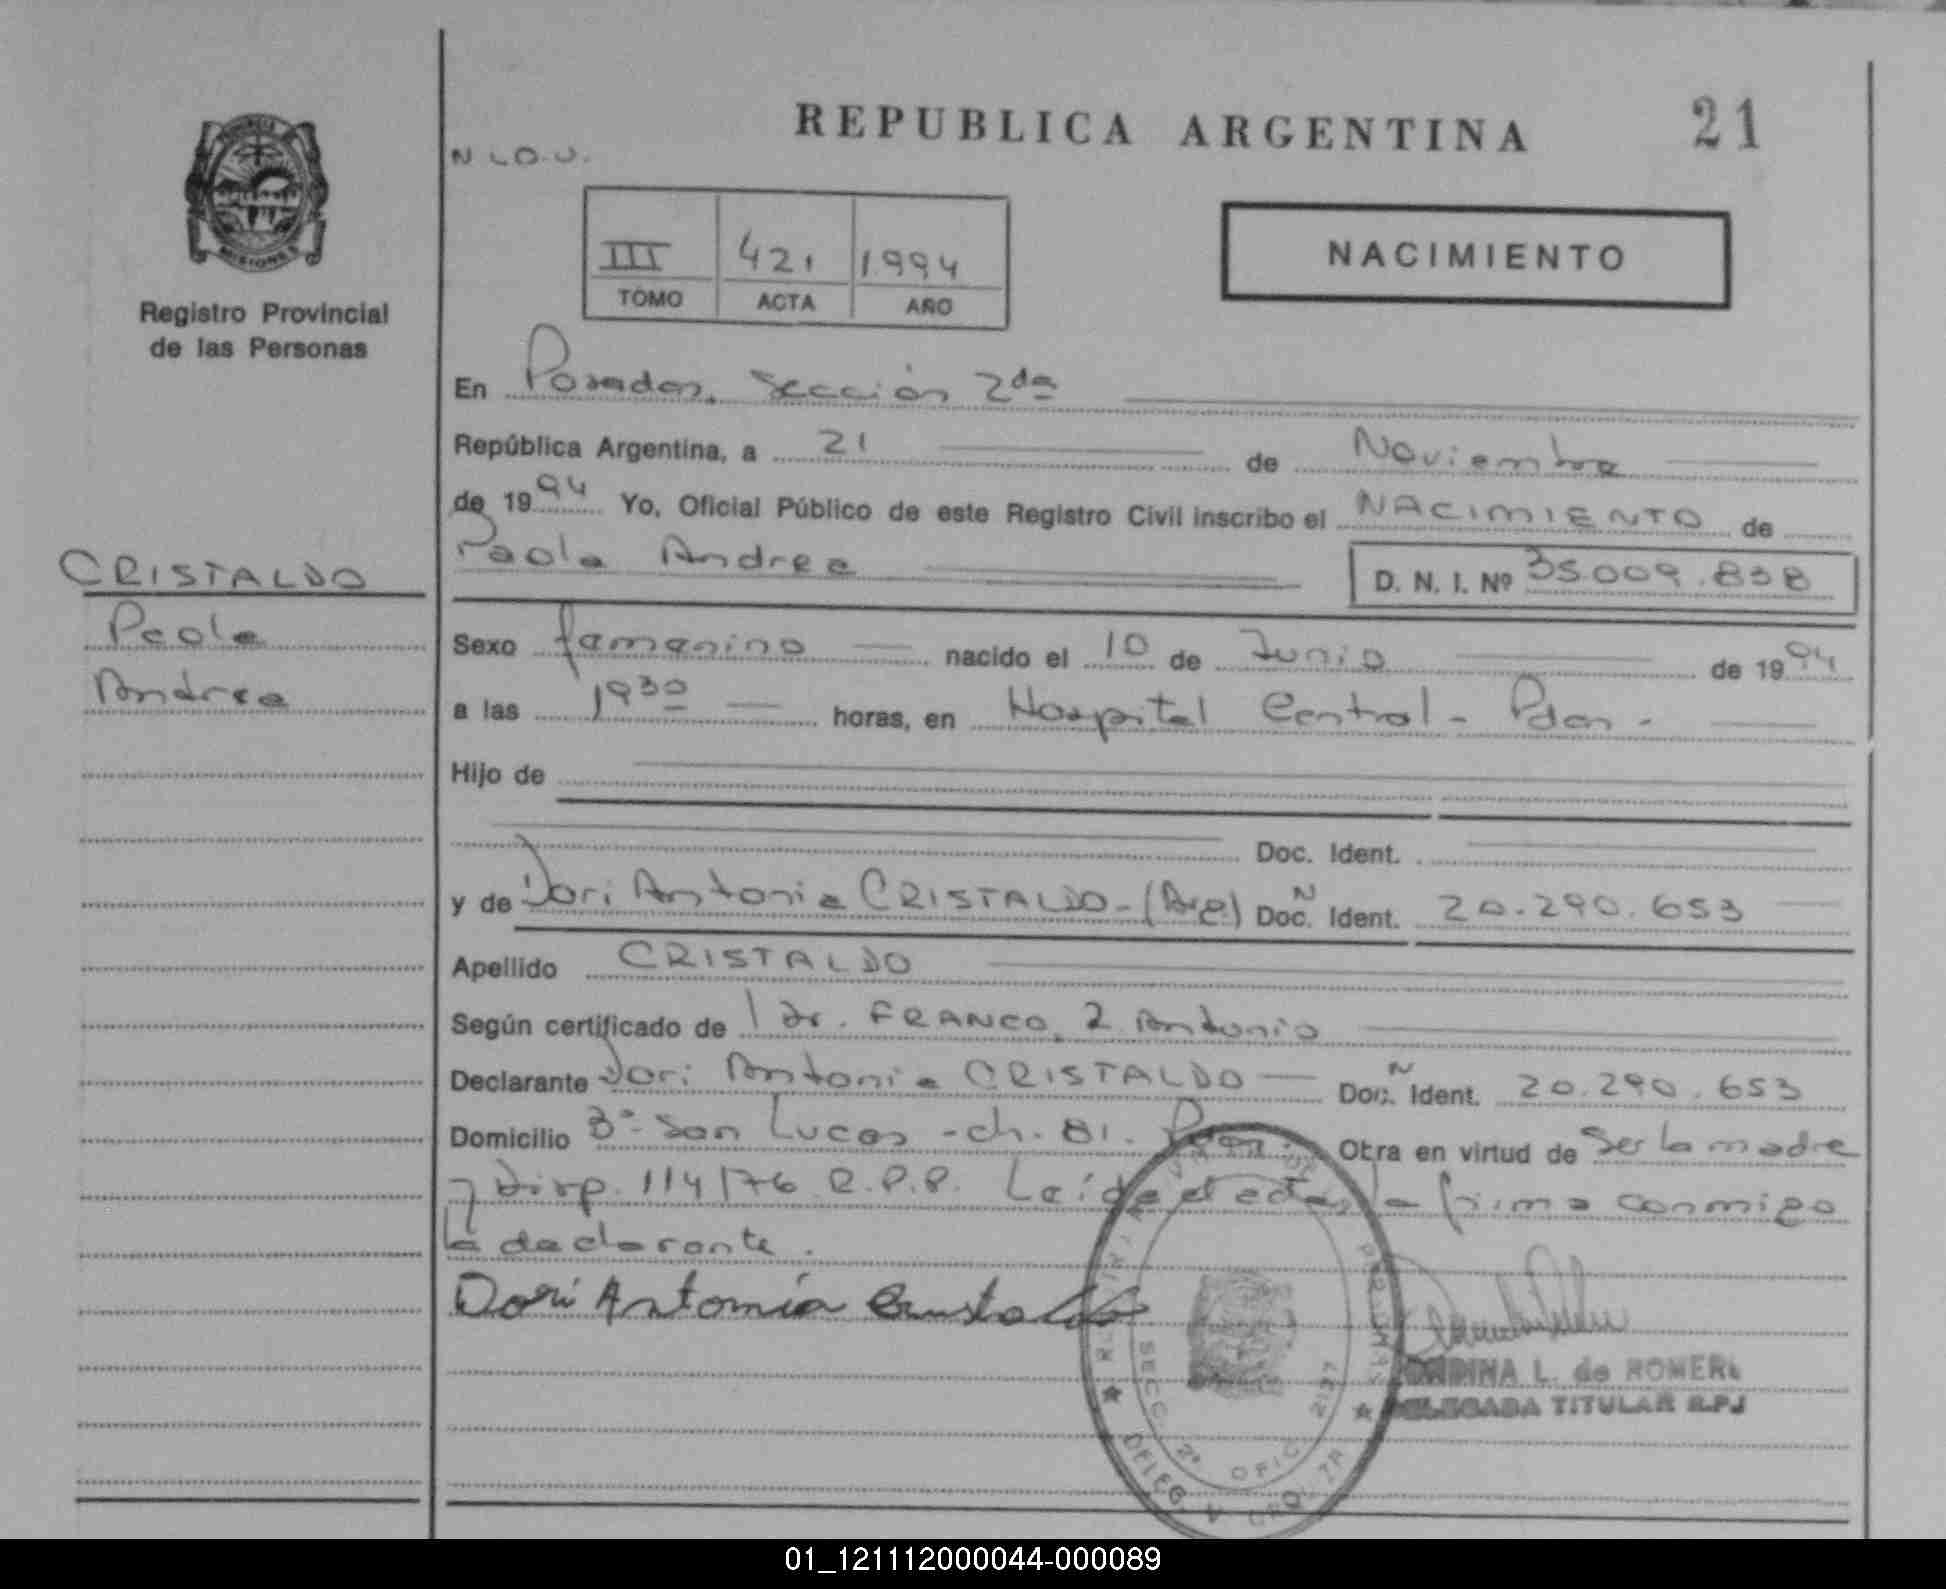 REPUBLICA ARGENTINA
21
PROVINCIA
MISIONES
Registro Provincial
de las Personas
III 421 1994
TOMO ACTA AÑO
NACIMIENTO
En Posadas, Sección 2da
República Argentina, a 21 de Noviembre
de 1994 Yo, Oficial Público de este Registro Civil inscribo el NACIMIENTO de
Paola Andrea D. N. I. Nº 35.009.838
CRISTALDO
Paola
Andrea
Sexo femenino nacido el 10 de Junio de 1994
a las 1930 horas, en Hospital Central - Pdas.
Hijo de
Doc. Ident.
y de Dori Antonia CRISTALDO - (Arg) N Doc. Ident. 20.290.653
Apellido CRISTALDO
Según certificado de Dr. FRANCO, Antonio
Declarante Dori Antonia CRISTALDO N Doc. Ident. 20.290.653
Domicilio Bº San Lucas - ch. 81. Pdas. Obra en virtud de ser la madre
y Disp. 114/76 R.P.P. Leída el acta, la firma conmigo
la declarante.
Dori Antonia Cristaldo
L. de ROMERO
DELEGADA TITULAR R.P.
SECC. 2ª OFIC. 2137
DELEG
01_121112000044-000089